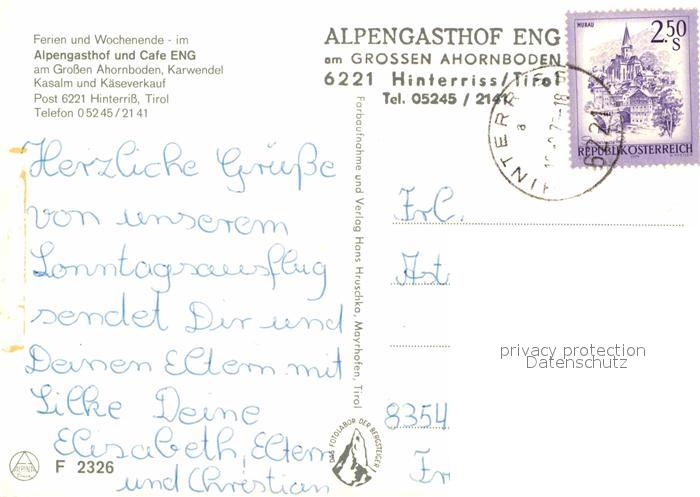 Ferien und Wochenende - im
Alpengasthof und Cafe ENG
am Großen Ahornboden, Karwendel
Kasalm und Käseverkauf
Post 6221 Hinterriß, Tirol
Telefon 0 52 45 / 21 41
ALPENGASTHOF ENG
am GROSSEN AHORNBODEN
6221 Hinterriss/Tirol
Tel. 05245 / 2141
MURAU
2.50
S
REPUBLIK ÖSTERREICH
6221 HINTERRISS
a
Herzliche Grüße
von unserem
Sonntagsausflug
sendet Dir und
Deinen Eltern mit
Silke Deine
Elisabeth, Eltern
und Christian
Farbaufnahme und Verlag Hans Hruschka, Mayrhofen, Tirol
Frl.
8354
privacy protection
Datenschutz
DAS FOTOLABOR DER BERGSTEIGER
ALPINA
F 2326